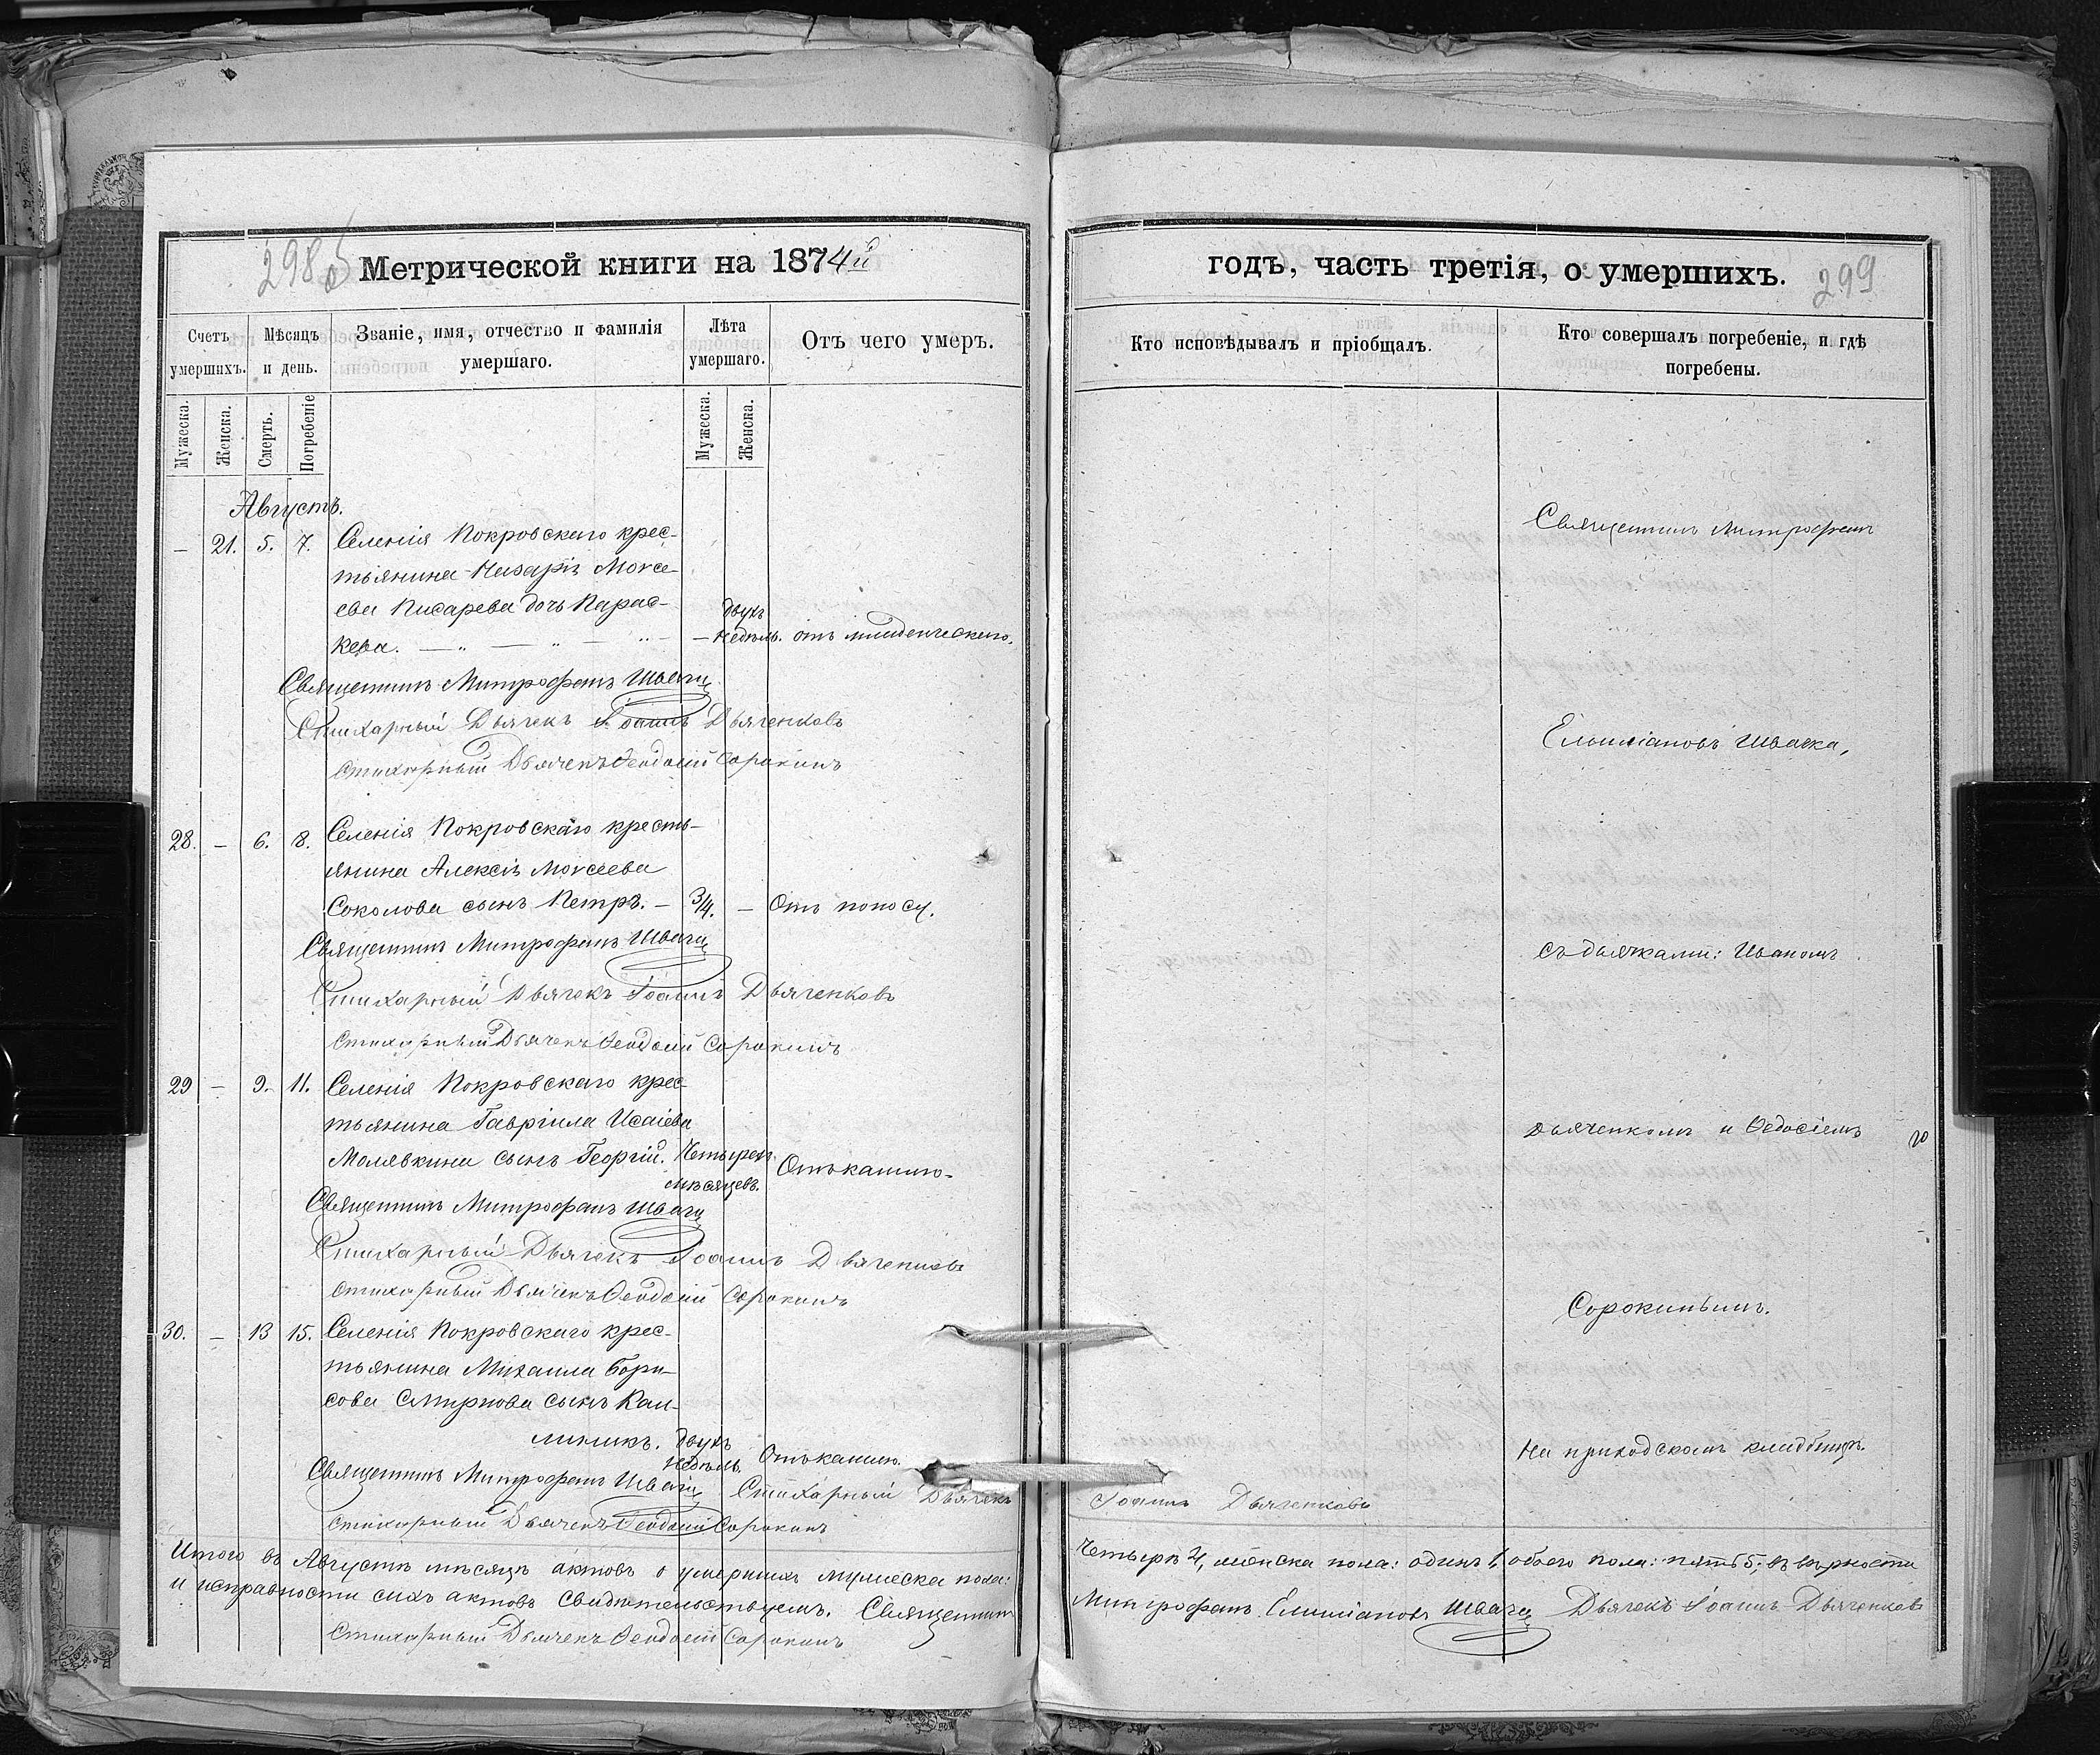 298 об
Метрической книги на 1874й
Счетъ умершихъ.
Мѣсяцъ и день.
Званіе, имя, отчество и фамилія умершаго.
Лѣта умершаго.
Отъ чего умеръ.
Мужеска.
Женска.
Смерть.
Погребеніе
Мужеска.
Женска.
Августъ.
— 21. 5. 7. Селенія Покровскаго крес-
тьянина Назарія Моѵсе-
ева Писарева дочь Парас- двухъ
кева. — „ — „ — — недѣль. отъ младенческаго.
Священникъ Митрофанъ Швачка
Стихарный Дьячекъ Іоаннъ Дьяченковъ
Стихарный Дьячекъ Ѳеодосій Сорокинъ
28. — 6. 8. Селенія Покровскаго кресть-
янина Алексія Моѵсеева
Соколова сынъ Петръ. — 3/4. — Отъ поносу.
Священникъ Митрофанъ Швачка
Стихарный Дьячекъ Іоаннъ Дьяченковъ
Стихарный Дьячекъ Ѳеодосій Сорокинъ
29 — 9. 11. Селенія Покровскаго крес-
тьянина Гавріила Исаіева
Молявкина сынъ Георгій. Четырех
мѣсяцевъ. Отъ кашлю.
Священникъ Митрофанъ Швачка
Стихарный Дьячекъ Іоаннъ Дьяченковъ
Стихарный Дьячекъ Ѳеодосій Сорокинъ
30. — 13 15. Селенія Покровскаго крес-
тьянина Михаила Бори-
сова Смирнова сынъ Кал-
линикъ. двухъ
недѣль. Отъ кашлю.
Священникъ Митрофанъ Швачка Стихарный Дьячекъ
Стихарный Дьячекъ Ѳеодосій Сорокинъ
Итого въ Августѣ мѣсяцѣ актовъ о умершихъ мужеска пола:
и исправности сихъ актовъ свидѣтельствуемъ. Священникъ
Стихарный Дьячекъ Ѳеодосій Сорокинъ
годъ, часть третія, о умершихъ. 299
Кто исповѣдывалъ и пріобщалъ.
Кто совершалъ погребеніе, и гдѣ
погребены.
Священникъ Митрофанъ
Емиліановъ Швачка,
съ дьячками: Иваномъ
Дьяченкомъ и Ѳедосіемъ
Сорокинымъ.
На приходскомъ кладбищѣ.
Іоаннъ Дьяченковъ
Четыре 4, женска пола: одинъ 1, обоего пола: пять 5; въ вѣрности
Митрофанъ Емиліановъ Швачка Дьячекъ Іоаннъ Дьяченковъ